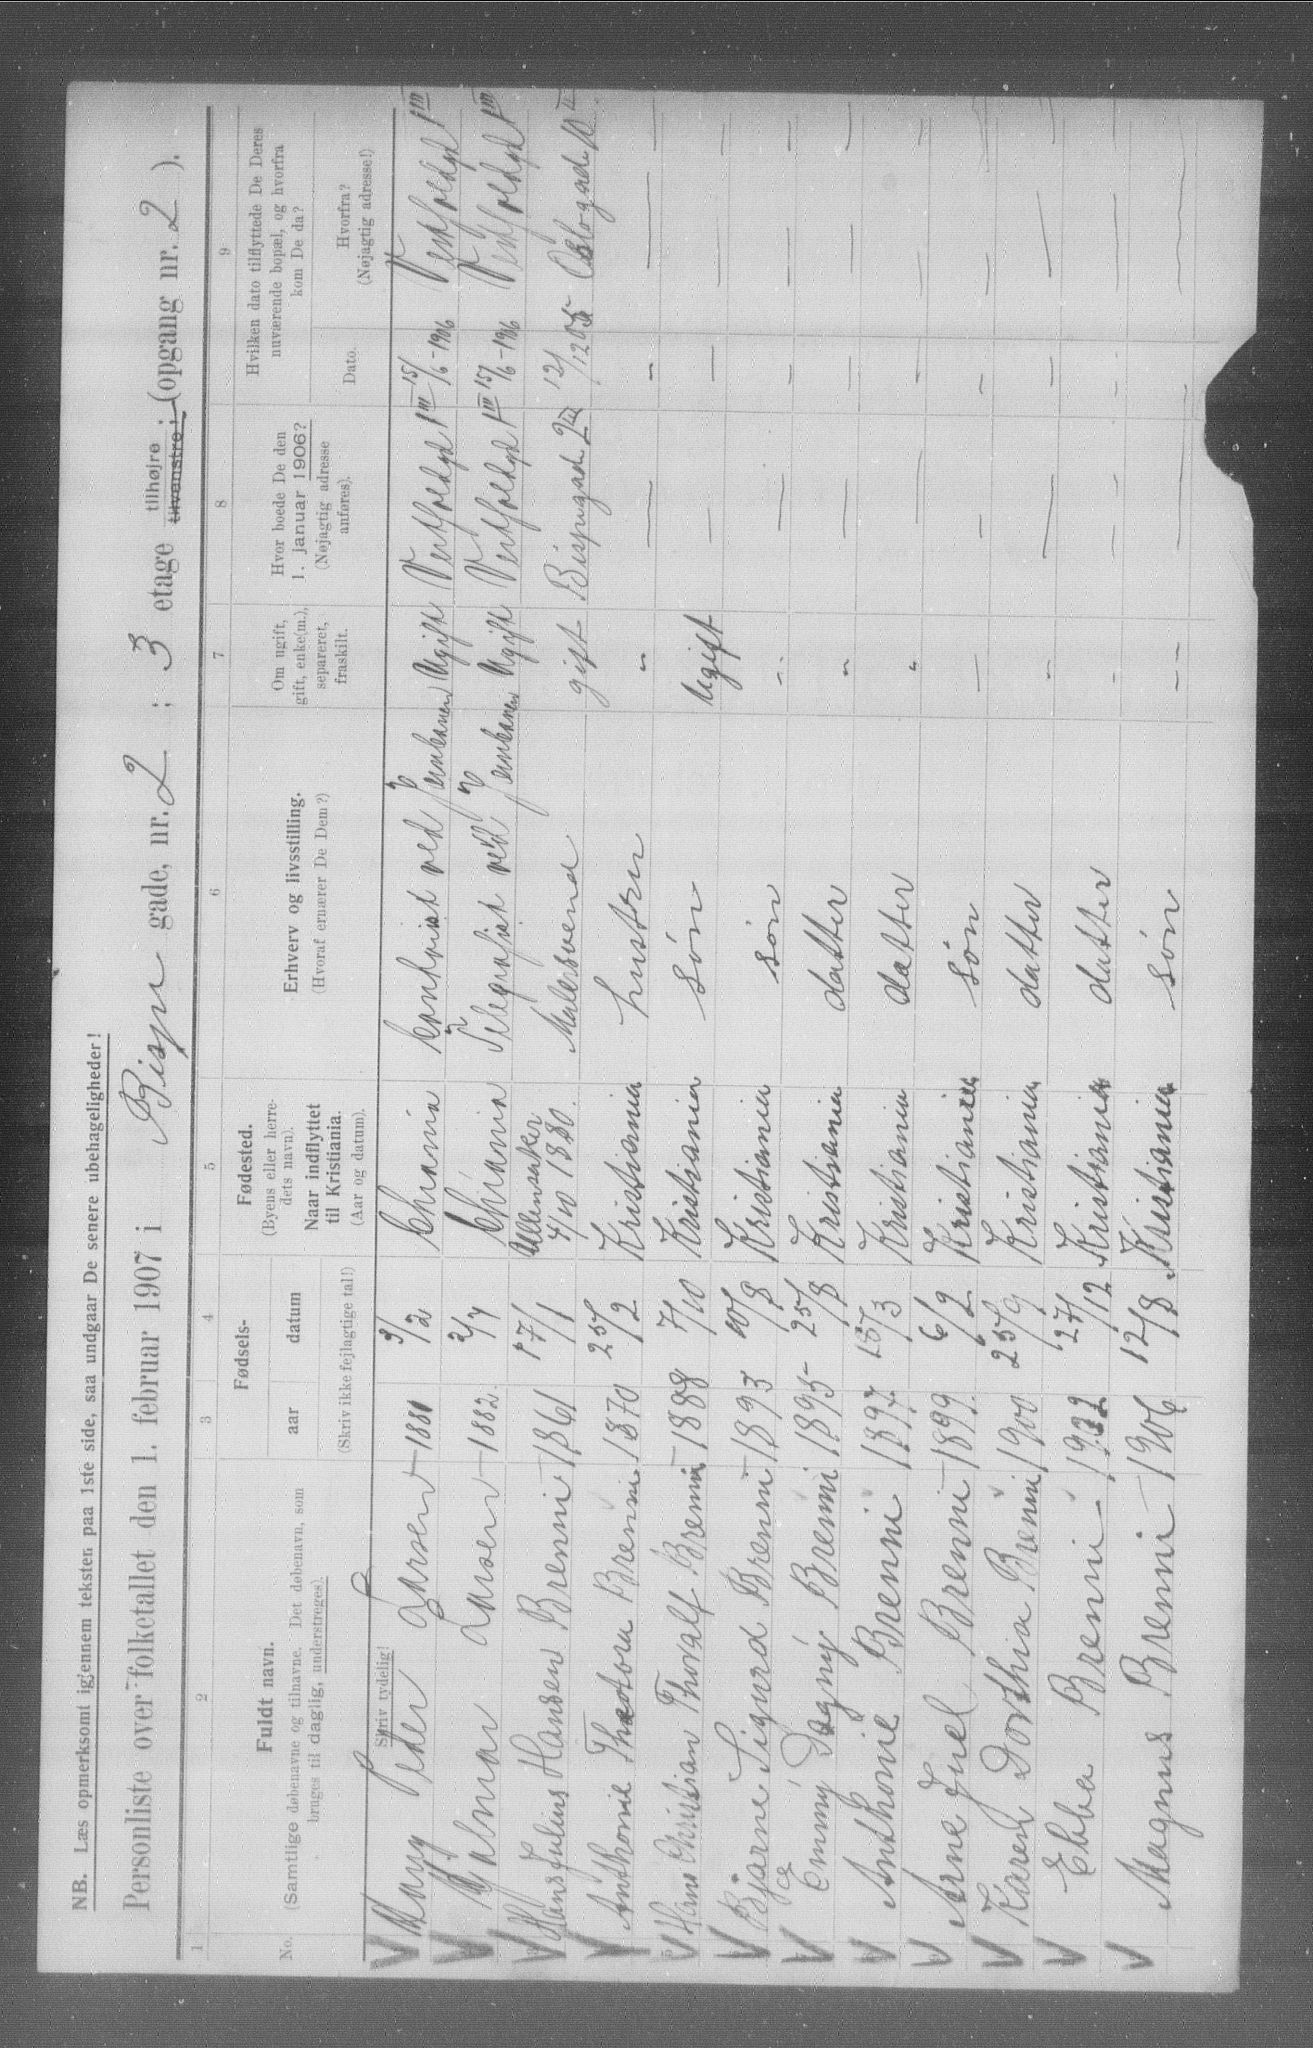 NB. Læs opmerksomt igjennem teksten paa 1ste side, saa undgaar De senere ubehageligheder!
Personliste over folketallet den 1. februar 1907 i Bispe gade, nr. 2 ; 3 etage tilhøjre tilvenstre ; (opgang nr. 2 ).
1 2 3 4 5 6 7 8 9
No.
Fuldt navn.
(Samtlige døbenavne og tilnavne. Det døbenavn, som
bruges til daglig, understreges).
Skriv tydelig!
Fødsels-
aar datum
(Skriv ikke fejlagtige tal!)
Fødested.
(Byens eller herre-
dets navn).
Naar indflyttet
til Kristiania.
(Aar og datum).
Erhverv og livsstilling.
(Hvoraf ernærer De Dem?)
Om ugift,
gift, enke(m.),
separeret,
fraskilt.
Hvor boede De den
1. januar 1906?
(Nøjagtig adresse
anføres).
Hvilken dato tilflyttede De Deres
nuværende bopæl, og hvorfra
kom De da?
Dato.
Hvorfra?
(Nøjagtig adresse!)
Peder Larsen 1880 3/2 Chriania ved Jernbanen Ugift 1 III 15/6-1906 1 III
Hjalmar Larsen 1882 2/4 Chriania Telegrafist ved Jernbanen Ugift 1 III 15/6-1906 1 III
Hans Julius Hansen Brenni 1861 17/1 Ullensaker 4/10 1880. Malersvend gift Bispegade 2 III 12/12 05 Oslogade 10 II
Anthonie Theodora Brenni 1870 25/2 Kristiania hustru " — — —
Hans Christian Thoralf Brenni 1888 7/10 Kristiania søn Ugift — — —
Bjarne Sigurd Brenni 1893 10/8 Kristiania søn " — — —
Emmy Dagny Brenni 1895 25/8 Kristiania datter " — — —
Anthonie Brenni 1897 15/3 Kristiania datter " — — —
Arne Juel Brenni 1899 6/2 Kristiania søn — — — —
Karen Dorthia Brenni 1900 25/9 Kristiania datter " — — —
Ebba Brenni 27/12 Kristiania datter — — — —
Magnus Brenni 1906 12/8 Kristiania søn — — — —